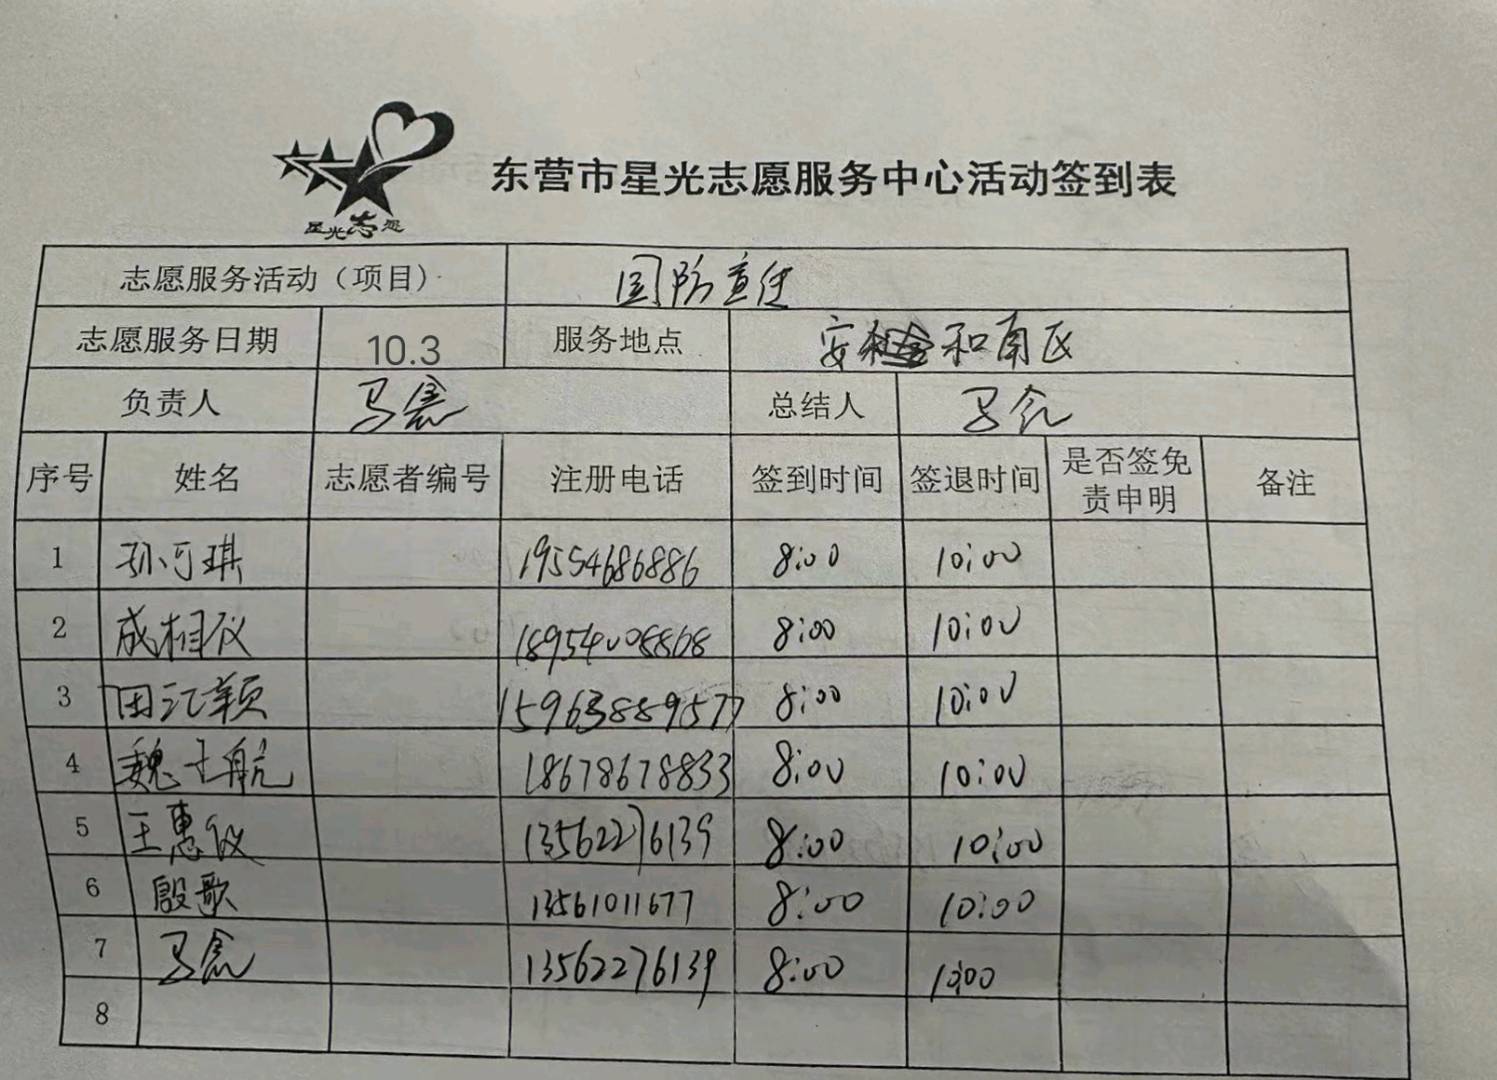 星光志愿
东营市星光志愿服务中心活动签到表
志愿服务活动（项目） 国防宣传
志愿服务日期 10.3 服务地点 安和南区
负责人 总结人
序号 姓名 志愿者编号 注册电话 签到时间 签退时间 是否签免责申明 备注
1 孙可琪 19554686886 8:00 10:00
2 成相仪 8:00 10:00
3 田江颖 15963889577 8:00 10:00
4 魏士航 18678678833 8:00 10:00
5 王惠仪 13562276139 8:00 10:00
6 殷歌 13561011677 8:00 10:00
7 13562276139 8:00 10:00
8